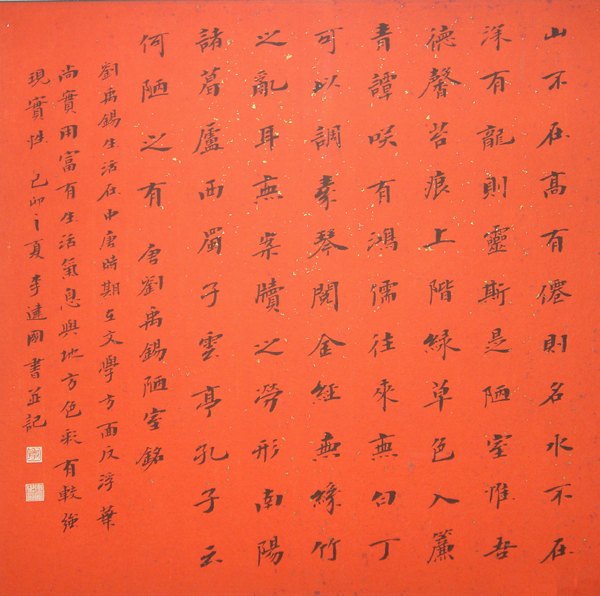 山不在高有僊則名水不在
深有龍則靈斯是陋室惟吾
德馨苔痕上階緑草色入簾
青譚咲有鴻儒往來無白丁
可以調素琴閲金經無絲竹
之亂耳無案牘之勞形南陽
諸葛廬西蜀子雲亭孔子云
何陋之有 唐劉禹錫陋室銘
劉禹錫生活在中唐時期在文學方面反浮華
尚實用富有生活氣息與地方色彩有較強
現實性 己卯之夏 李國書並記